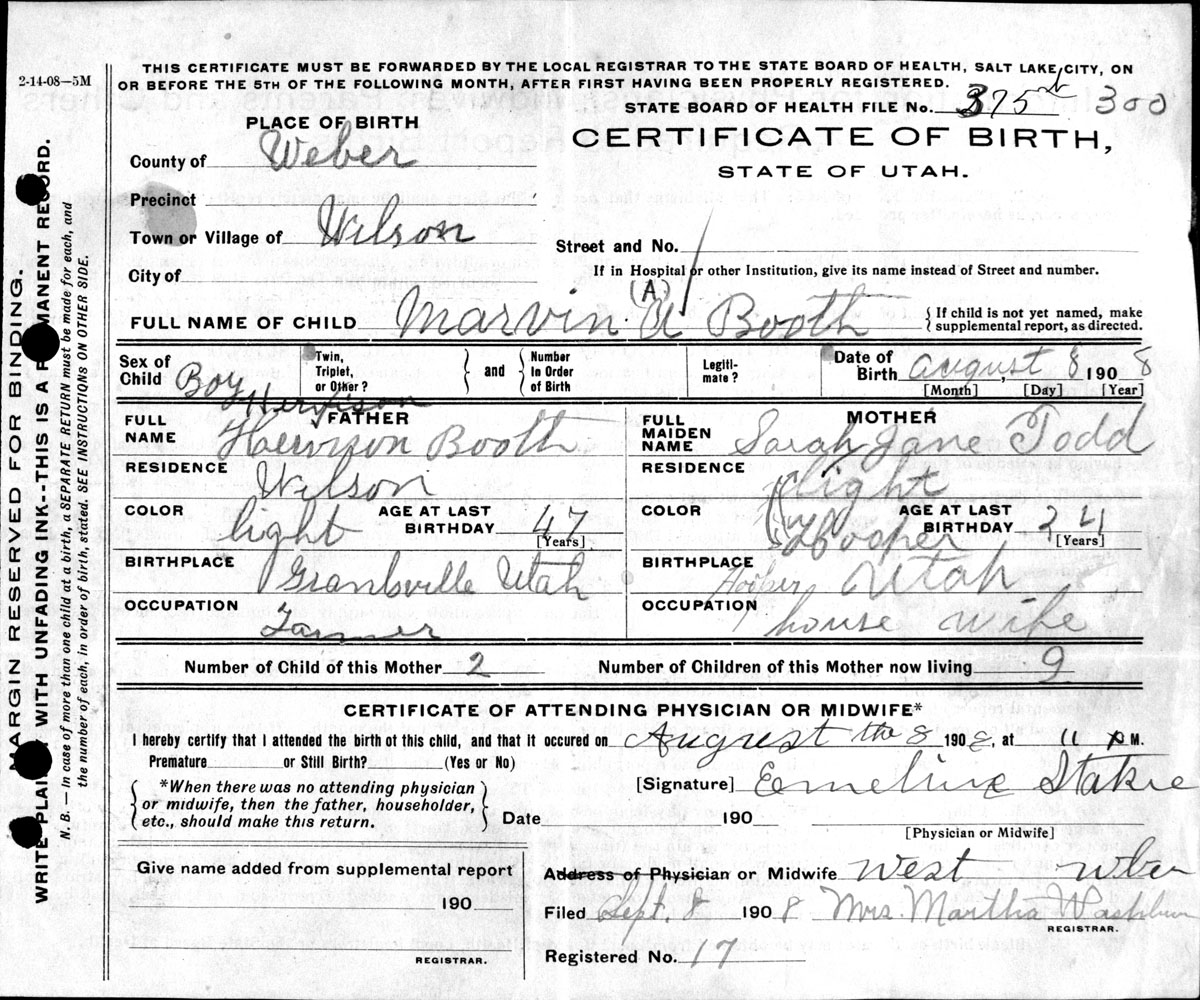 2-14-08—5M
THIS CERTIFICATE MUST BE FORWARDED BY THE LOCAL REGISTRAR TO THE STATE BOARD OF HEALTH, SALT LAKE CITY, ON
OR BEFORE THE 5TH OF THE FOLLOWING MONTH, AFTER FIRST HAVING BEEN PROPERLY REGISTERED.
STATE BOARD OF HEALTH FILE No. 375 300
PLACE OF BIRTH
CERTIFICATE OF BIRTH,
STATE OF UTAH.
County of Weber
Precinct
Town or Village of Wilson
Street and No.
City of
If in Hospital or other Institution, give its name instead of Street and number.
(A)
FULL NAME OF CHILD Marvin A Booth
{ If child is not yet named, make
supplemental report, as directed.
Sex of Child Boy
Twin, Triplet, or Other? } and { Number In Order of Birth
Legitimate?
Date of Birth August 8 1908
[Month] [Day] [Year]
FATHER
FULL NAME Booth
RESIDENCE Wilson
COLOR light
AGE AT LAST BIRTHDAY 47 [Years]
BIRTHPLACE Grantsville Utah
OCCUPATION Farmer
MOTHER
FULL MAIDEN NAME Sarah Jane Todd
RESIDENCE light
COLOR Hooper
AGE AT LAST BIRTHDAY 34 [Years]
BIRTHPLACE Hooper Utah
OCCUPATION house wife
Number of Child of this Mother 2 Number of Children of this Mother now living 9
CERTIFICATE OF ATTENDING PHYSICIAN OR MIDWIFE*
I hereby certify that I attended the birth of this child, and that it occured on August the 8 1908, at 11 P M.
Premature or Still Birth? (Yes or No)
*When there was no attending physician
or midwife, then the father, householder,
etc., should make this return.
[Signature] Emeline
Date 190
[Physician or Midwife]
Give name added from supplemental report
190
REGISTRAR.
Address of Physician or Midwife West
Filed Sept. 8 1908 Mrs. Martha Washburn
REGISTRAR.
Registered No. 17
MARGIN RESERVED FOR BINDING.
WRITE PLAINLY, WITH UNFADING INK--THIS IS A PERMANENT RECORD.
N. B.— In case of more than one child at a birth, a SEPARATE RETURN must be made for each, and
the number of each, in order of birth, stated. SEE INSTRUCTIONS ON OTHER SIDE.